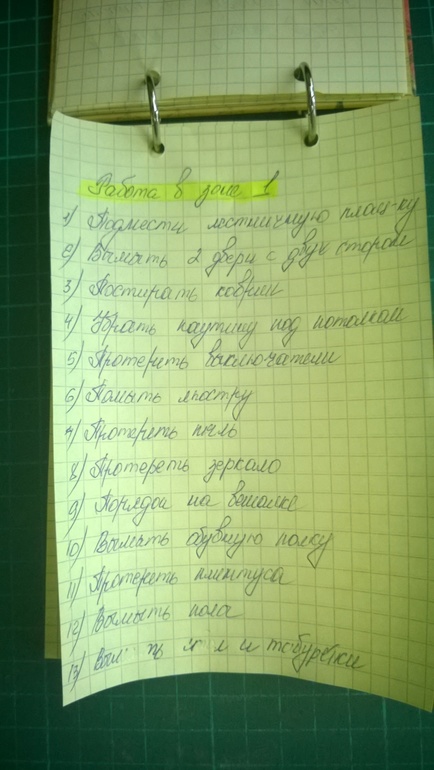 Работа в зоне 1
1) Подмести лестничную площ-ку
2) Вымыть 2 двери с двух сторон
3) Постирать коврик
4) Убрать паутину под потолком
5) Протереть выключатели
6) Помыть люстру
7) Протереть пыль
8) Протереть зеркало
9) Порядок на вешалке
10) Вымыть обувную полку
11) Протереть плинтуса
12) Вымыть пола
13) и табуретки